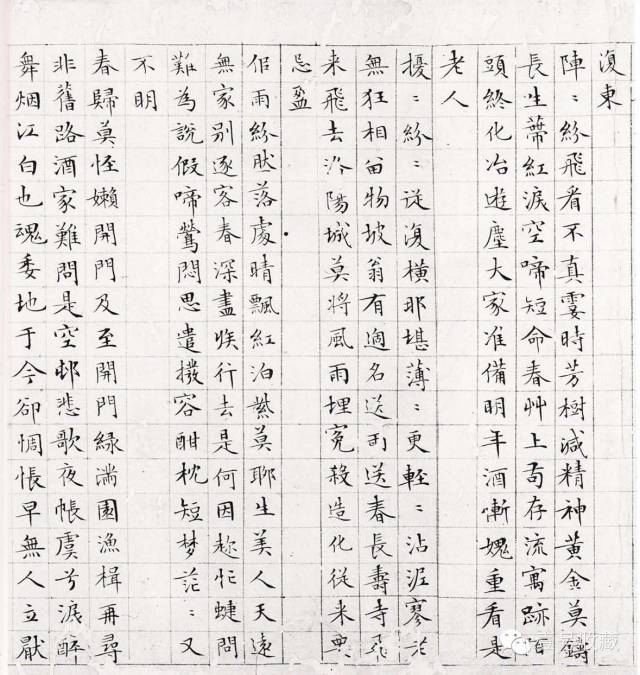 復東
陣〻紛飛看不真霎時芳樹減精神黄金莫鑄
長生蔕紅淚空啼短命春艸上苟存流寓跡陌
頭終化冶遊塵大家准備明年酒慚媿重看是
老人
擾〻紛〻従復橫那堪薄〻更輕〻沾泥寥落
無狂相留物坡翁有過名送雨送春長壽寺飛
来飛去洛陽城莫將風雨埋冤殺造化従来要
忌盈
似雨紛然落處晴飄紅泊紫莫聊生美人天遠
無家別逐客春深盡族行去是何因趂忙蜨問
難為說假啼鶯悶思遣撥容酣枕短梦茫〻又
不明
春歸莫恠嬾開門及至開門緑滿園漁楫再尋
非舊路酒家難問是空邨悲歌夜帳虞兮淚醉
舞烟江白也魂委地于今卻惆悵早無人立厭
收藏